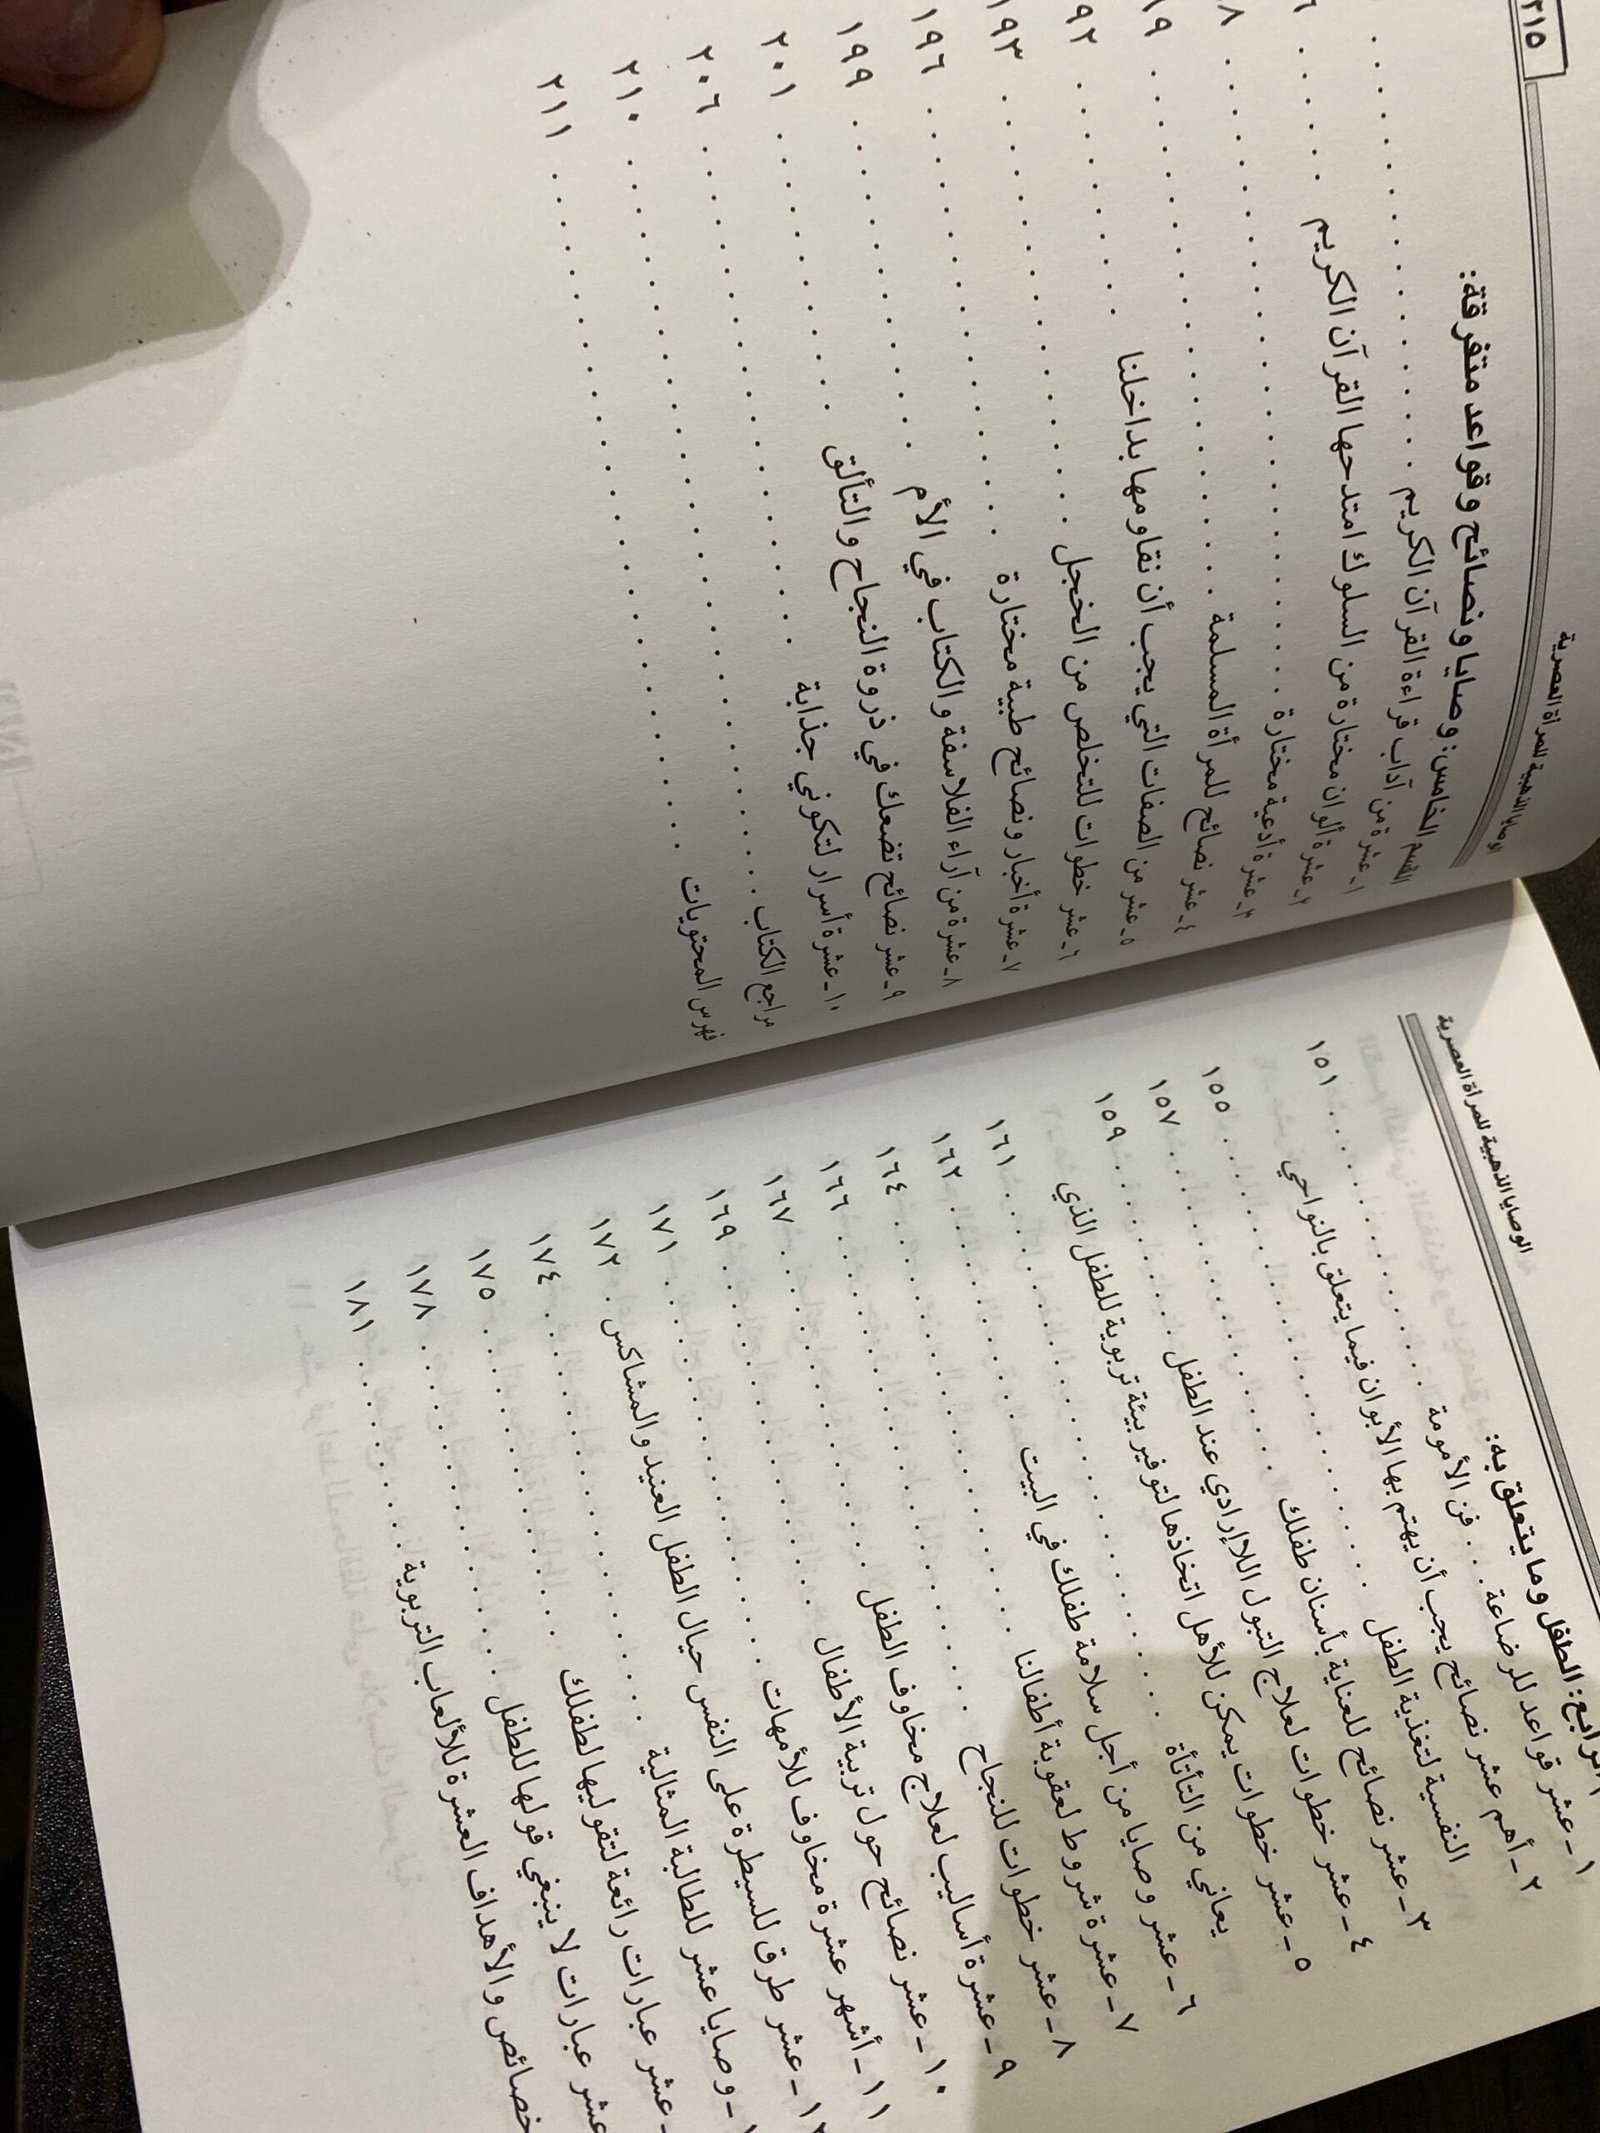 الوصايا الذهبية للمرأة العصرية
الرابع: الطفل وما يتعلق به:
١ـ عشر قواعد للرضاعة . . . فن الأمومة . . . ١٥١
٢ـ أهم عشر نصائح يجب أن يهتم بها الأبوان فيما يتعلق بالنواحي
النفسية لتغذية الطفل . . . ١٥٥
٣ـ عشر نصائح للعناية بأسنان طفلك . . . ١٥٧
٤ـ عشر خطوات لعلاج التبول اللاإرادي عند الطفل . . . ١٥٩
٥ـ عشر خطوات يمكن للأهل اتخاذها لتوفير بيئة تربوية للطفل الذي
يعاني من التأتأة . . . ١٦١
٦ـ عشر وصايا من أجل سلامة طفلك في البيت . . . ١٦٢
٧ـ عشرة شروط لعقوبة أطفالنا . . . ١٦٤
٨ـ عشر خطوات للنجاح . . . ١٦٦
٩ـ عشرة أساليب لعلاج مخاوف الطفل . . . ١٦٧
١٠ـ عشر نصائح حول تربية الأطفال . . . ١٦٩
١١ـ أشهر عشرة مخاوف للأمهات . . . ١٧١
١٢ـ عشر طرق للسيطرة على النفس حيال الطفل العنيد والمشاكس . ١٧٢
ـ وصايا عشر للطالبة المثالية . . . ١٧٤
ـ عشر عبارات رائعة لتقوليها لطفلك . . . ١٧٥
عشر عبارات لا ينبغي قولها للطفل . . . ١٧٨
خصائص والأهداف العشرة للألعاب التربوية . . . ١٨١
الوصايا الذهبية للمرأة العصرية
٢١٥
القسم الخامس: وصايا ونصائح وقواعد متفرقة:
١ـ عشرة من آداب قراءة القرآن الكريم . . .
٢ـ عشرة ألوان مختارة من السلوك امتدحها القرآن الكريم . . . ٦
٣ـ عشرة أدعية مختارة . . . ٨
٤ـ عشر نصائح للمرأة المسلمة . . . ٩
٥ـ عشر من الصفات التي يجب أن نقاومها بداخلنا . . . ١٩٢
٦ـ عشر خطوات للتخلص من الخجل . . . ١٩٣
٧ـ عشرة أخبار ونصائح طبية مختارة . . . ١٩٦
٨ـ عشرة من آراء الفلاسفة والكتاب في الأم . . . ١٩٩
٩ـ عشر نصائح تضعك في ذروة النجاح والتألق . . . ٢٠١
١٠ـ عشرة أسرار لتكوني جذابة . . . ٢٠٦
مراجع الكتاب . . . ٢١٠
فهرس المحتويات . . . ٢١١